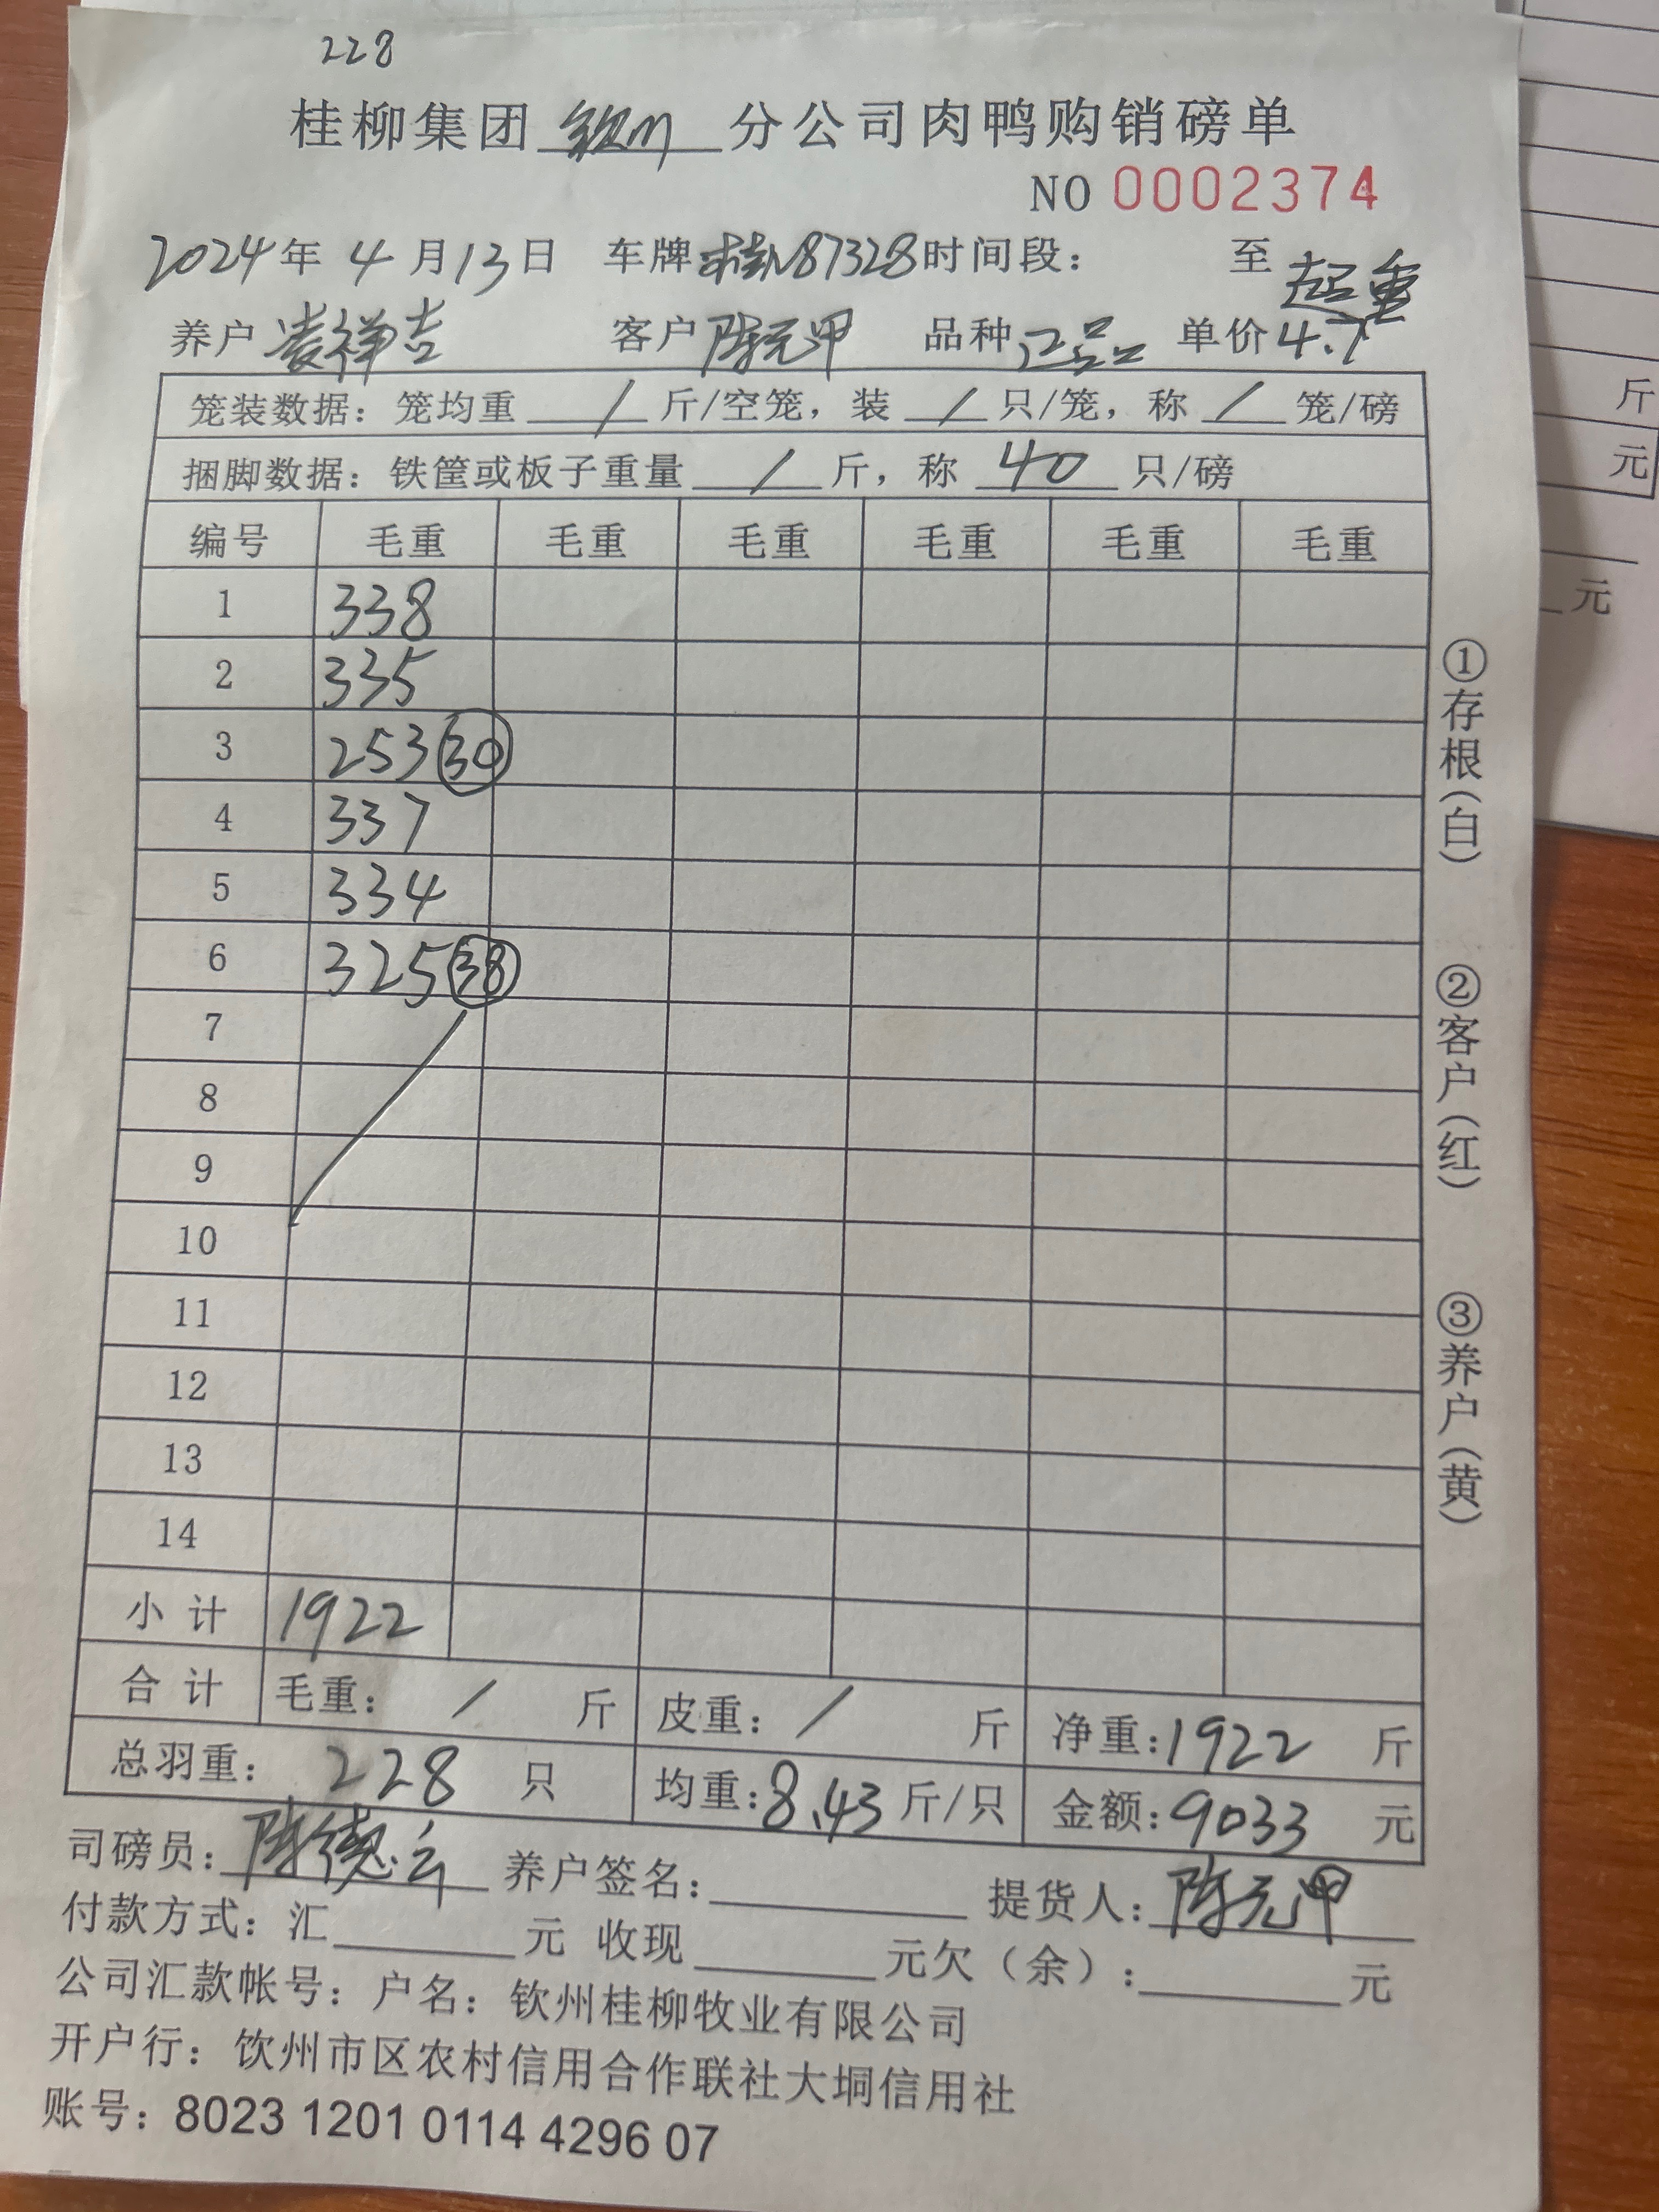 228
桂柳集团钦州分公司肉鸭购销磅单
NO 0002374
2024年 4月13日 车牌桂N87328时间段： 至
超重
养户 凌祥吉 客户 陈元甲 品种 正品 单价4.7
笼装数据：笼均重 / 斤/空笼，装 / 只/笼，称 / 笼/磅
捆脚数据：铁筐或板子重量 / 斤，称 40 只/磅
编号 毛重 毛重 毛重 毛重 毛重 毛重
1 338
2 335
3 253 30
4 337
5 334
6 325 38
7
8
9
10
11
12
13
14
小计 1922
合计 毛重： / 斤 皮重： / 斤 净重：1922 斤
总羽重： 228 只 均重：8.43 斤/只 金额：9033 元
司磅员：陈德云 养户签名： 提货人：陈元甲
付款方式：汇 元 收现 元欠（余）： 元
公司汇款帐号：户名：钦州桂柳牧业有限公司
开户行：钦州市区农村信用合作联社大垌信用社
账号：8023 1201 0114 4296 07
①存根（白）
②客户（红）
③养户（黄）
斤
元
元